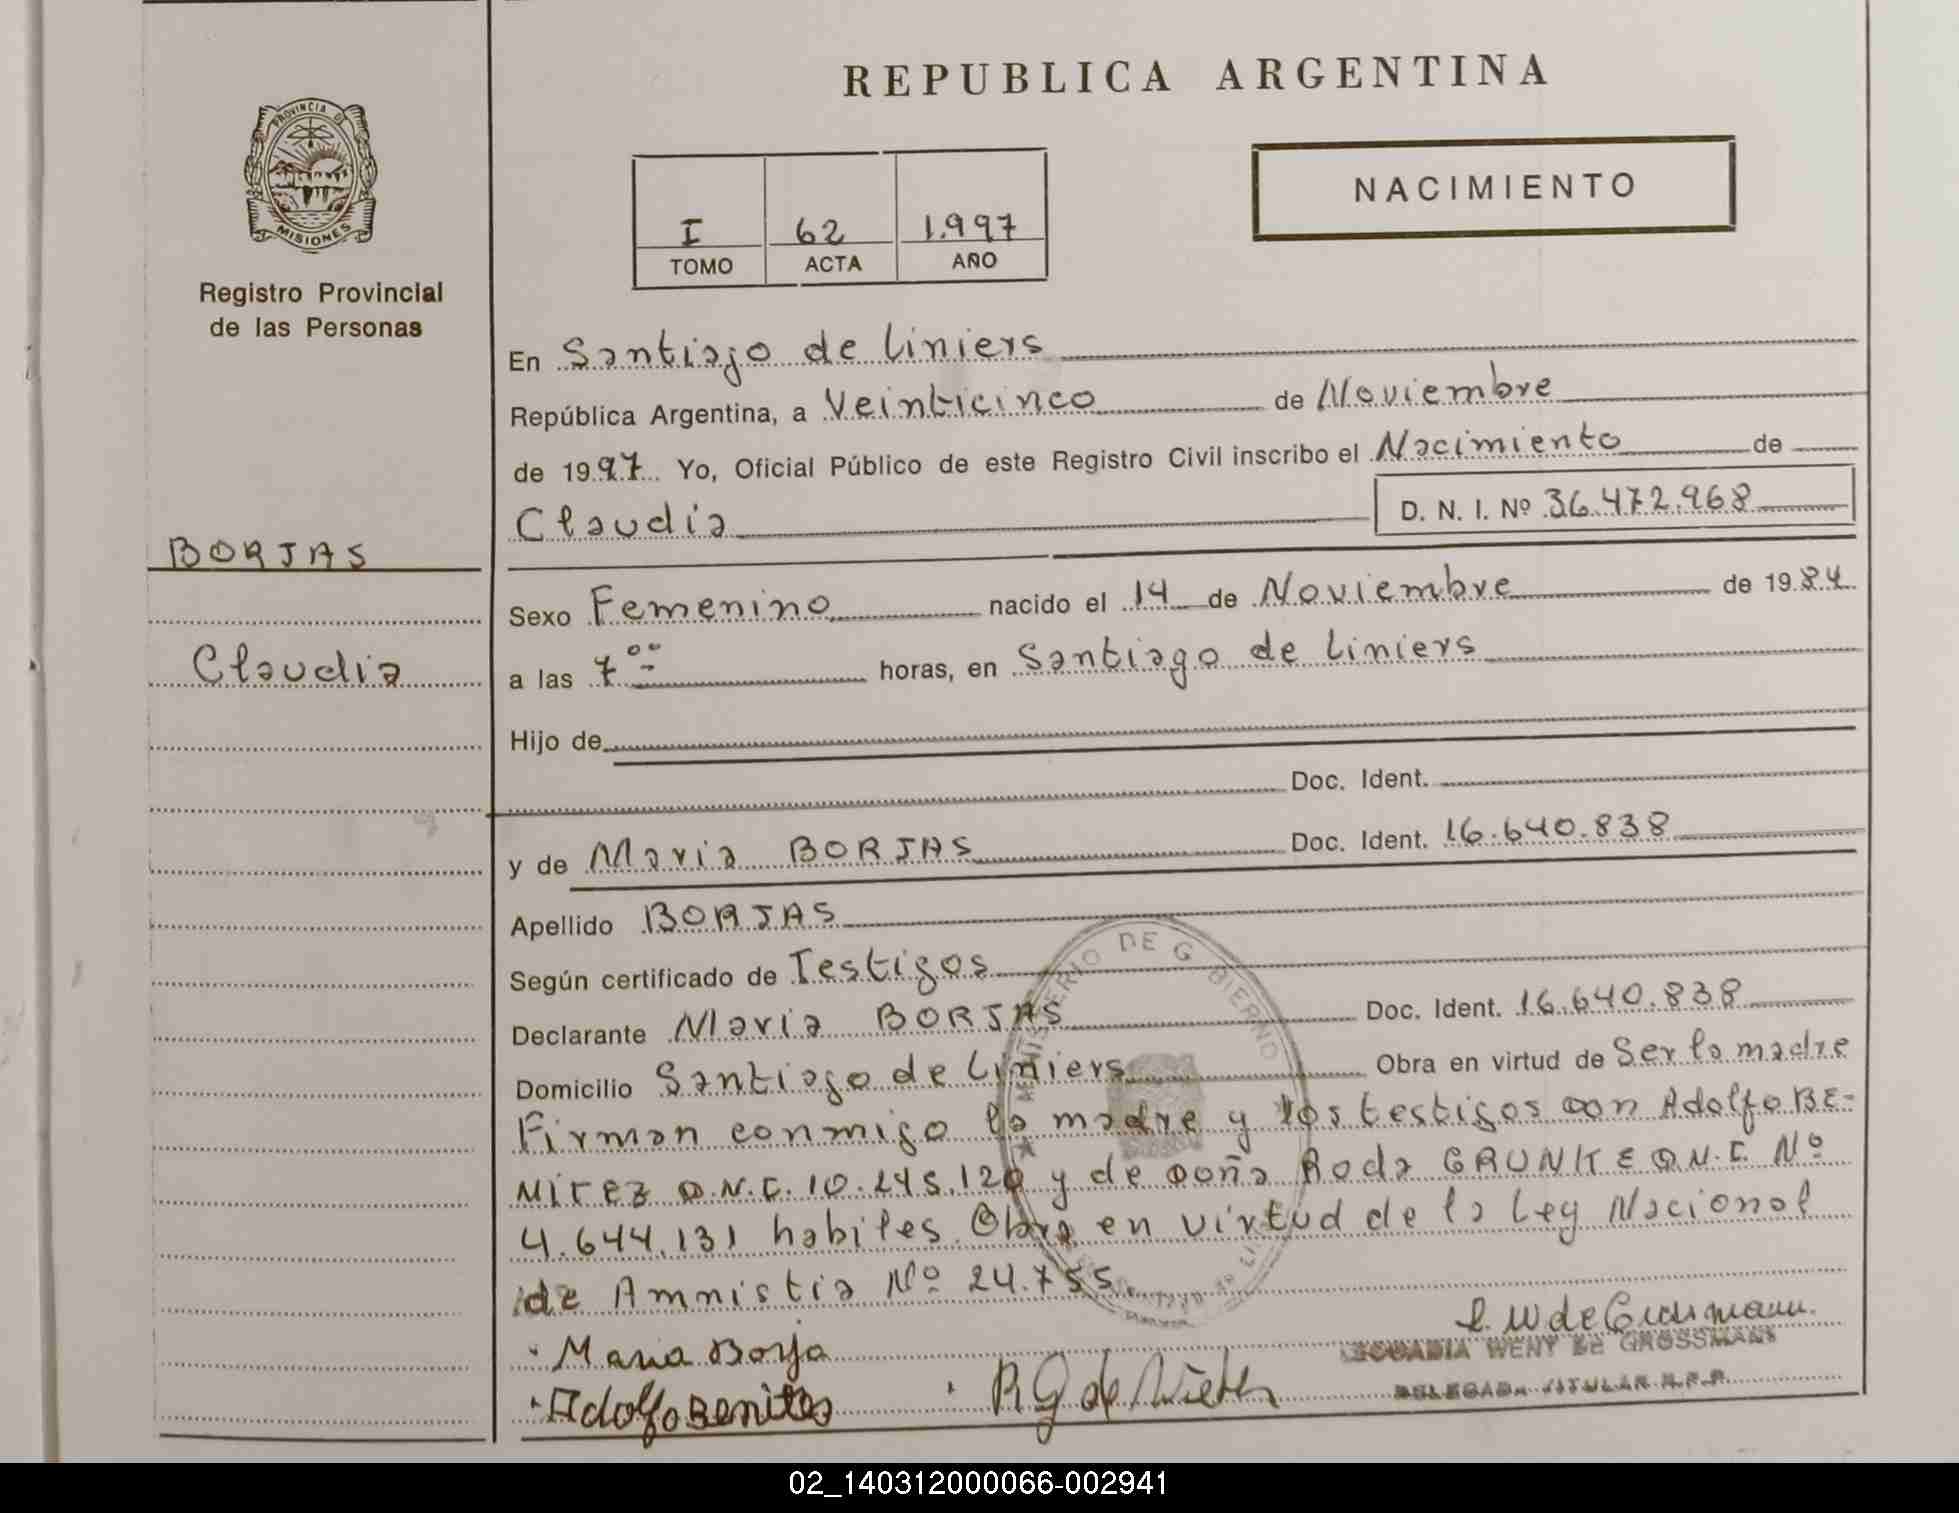 REPUBLICA ARGENTINA
PROVINCIA DE
MISIONES
Registro Provincial
de las Personas
I 62 1.997
TOMO ACTA AÑO
NACIMIENTO
En Santiago de Liniers
República Argentina, a Veinticinco de Noviembre
de 1997 Yo, Oficial Público de este Registro Civil inscribo el Nacimiento de
Claudia D. N. I. Nº 36.472.968
BORJAS
Claudia
Sexo Femenino nacido el 14 de Noviembre de 1984
a las 7 00 horas, en Santiago de Liniers
Hijo de
Doc. Ident.
y de Maria BORJAS Doc. Ident. 16.640.838
Apellido BORJAS
Según certificado de Testigos
Declarante Maria BORJAS Doc. Ident. 16.640.838
Domicilio Santiago de Liniers Obra en virtud de Ser la madre
Firman conmigo la madre y los testigos Don Adolfo BE-
NITEZ D.N.I. 10.245.120 y de Doña Roda GRUNKE D.N.I. Nº
4.644.131 habiles. Obra en virtud de la Ley Nacional
de Amnistia Nº 24.755
MINISTERIO DE G BIERNO
Maria Borja
Adolfo Benites
R G de
WENY DE GROSSMANN
DELEGADA TITULAR R.P.P.
02_140312000066-002941